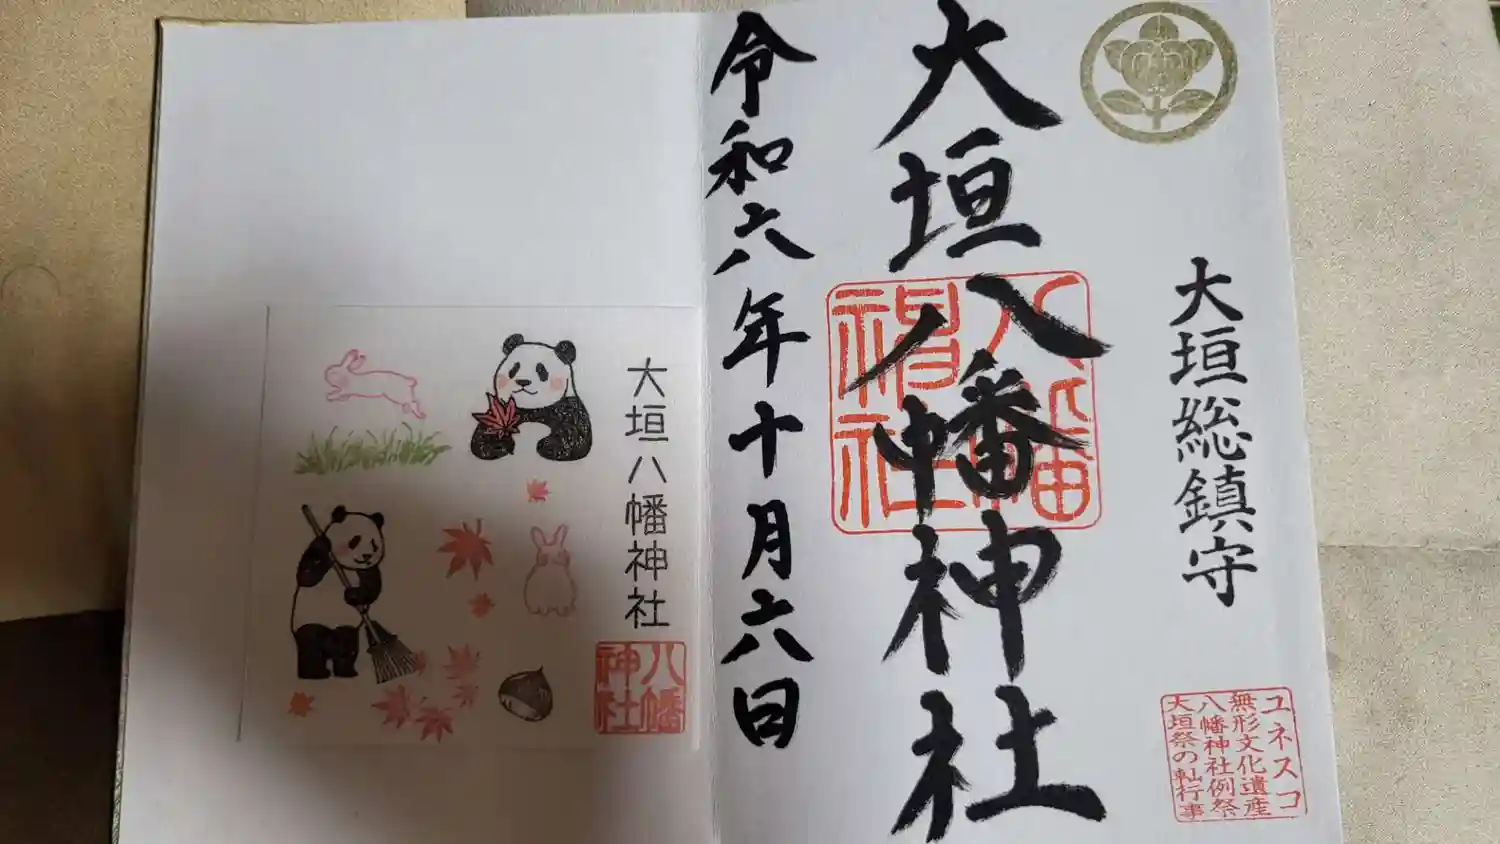 大垣総鎮守
大垣八幡神社
八幡
神社
令和六年十月六日
ユネスコ
無形文化遺産
八幡神社例祭
大垣祭の軕行事
大垣八幡神社
八幡
神社